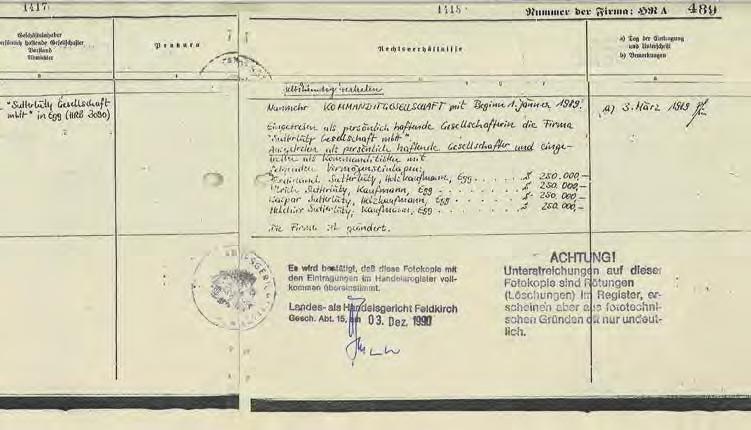 1417.
1418.
Nummer der Firma: HRA 489
Geschäftsinhaber
persönlich haftende Gesellschafter
Vorstand
Abwickler
Prokura
Rechtsverhältnisse
a) Tag der Eintragung
und Unterschrift
b) Bemerkungen
"Sutterlüty Gesellschaft
mbH" in Egg (HRB 3080)
selbständig vertreten
Nunmehr KOMMANDITGESELLSCHAFT mit Beginn 1. Jänner 1989.
a) 3. März 1989
Eingetreten als persönlich haftende Gesellschafterin die Firma
"Sutterlüty Gesellschaft mbH"
Ausgetreten als persönlich haftende Gesellschafter und einge-
treten als Kommanditisten mit
folgenden Vermögenseinlagen:
Ferdinand Sutterlüty, Holzkaufmann, Egg . . . . . S 250.000,–
Ulrich Sutterlüty, Kaufmann, Egg . . . . . . . S 250.000,–
Kaspar Sutterlüty, Holzkaufmann, Egg . . . . . . S 250.000,–
Melchior Sutterlüty, Kaufmann, Egg . . . . . . . S 250.000,–
Die Firma ist geändert.
Es wird bestätigt, daß diese Fotokopie mit
den Eintragungen im Handelsregister voll-
kommen übereinstimmt.
Landes- als Handelsgericht Feldkirch
Gesch. Abt. 15, am 03. Dez. 1990
ACHTUNG!
Unterstreichungen auf dieser
Fotokopie sind Rötungen
(Löschungen) im Register, er-
scheinen aber aus fototechni-
schen Gründen oft nur undeut-
lich.